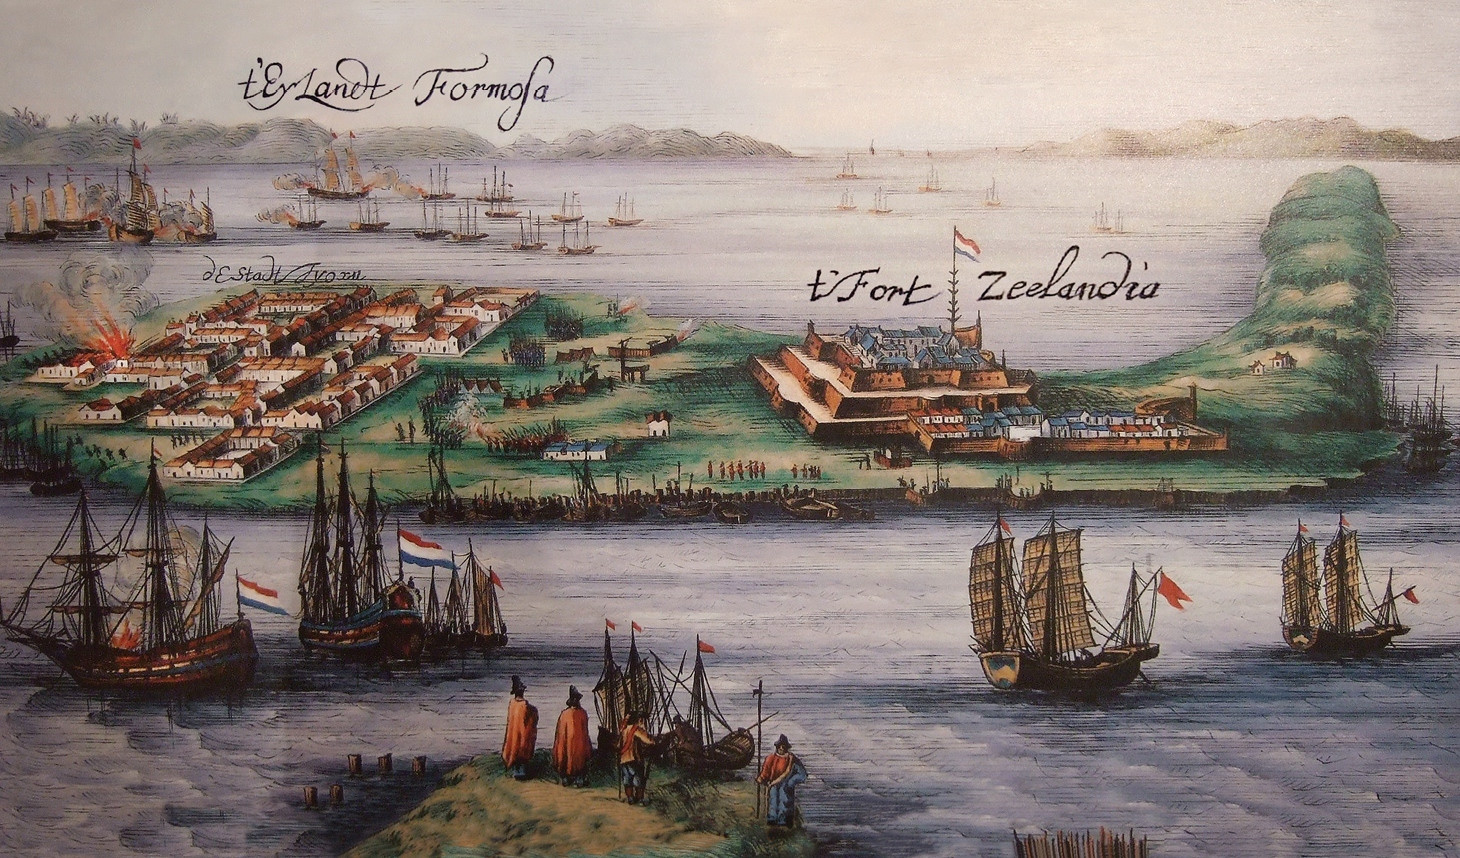 t'Eylandt Formosa
d'Estadt Tyovan
t'Fort Zeelandia